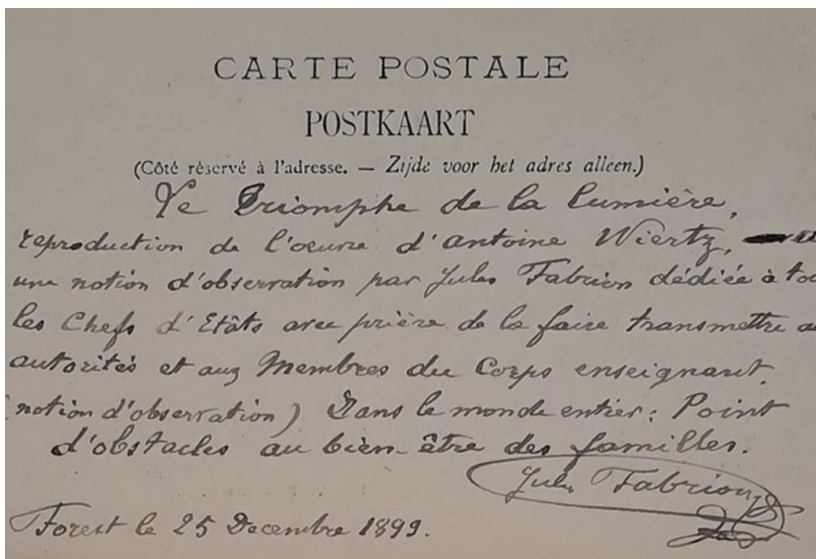 CARTE POSTALE
POSTKAART
(Côté réservé à l'adresse. — Zijde voor het adres alleen.)
Le Triomphe de la lumière,
reproduction de l'oeuvre d'Antoine Wiertz,
une notion d'observation par Jules Fabrion dédiée à tou
les Chefs d'Etâts avec prière de la faire transmettre a
autorités et aux Membres du Corps enseignant.
(notion d'observation) Dans le monde entier: Point
d'obstacles au bien-être des familles.
Jules Fabrion
Forest le 25 Decembre 1899.